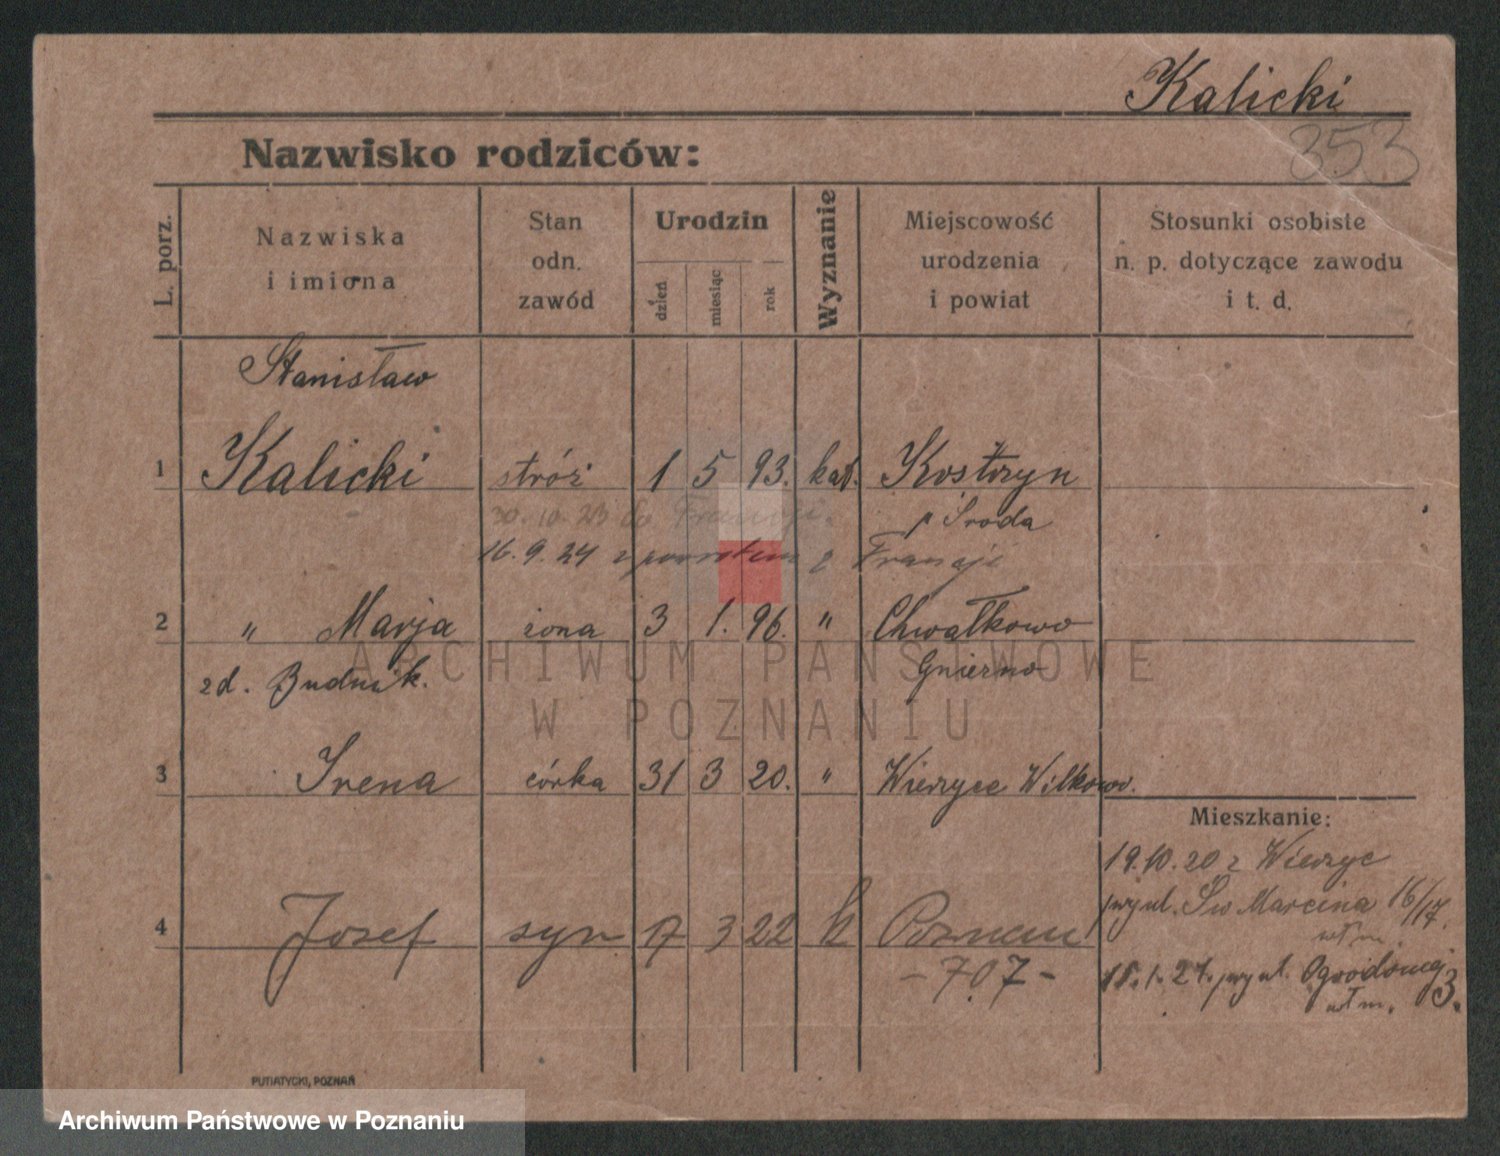 Kalicki
353
Nazwisko rodziców:
L. porz.
Nazwiska
i imiona
Stan
odn.
zawód
Urodzin
dzień
miesiąc
rok
Wyznanie
Miejscowość
urodzenia
i powiat
Stosunki osobiste
n. p. dotyczące zawodu
i t. d.
Stanisław
1 Kalicki stróż 1 5 93. kat. Kostrzyn
30.10.23 do Francji. p Środa
16.9.24 z powrotem z Francji
2 " Marja żona 3 1. 96. " Chwałkowo
zd. Budnik. Gniezno
3 Irena córka 31 3 20. " Wierzyce Wilkowo.
Mieszkanie:
19.10.20 z Wierzyc
przy ul. Św Marcina 16/17.
wł m.
4 Józef syn 7 3 22 k Poznań
- 707 -
1.27. przy ul. Ogrodowej 3.
wł m.
PUTIATYCKI, POZNAŃ
ARCHIWUM PAŃSTWOWE
W POZNANIU
Archiwum Państwowe w Poznaniu